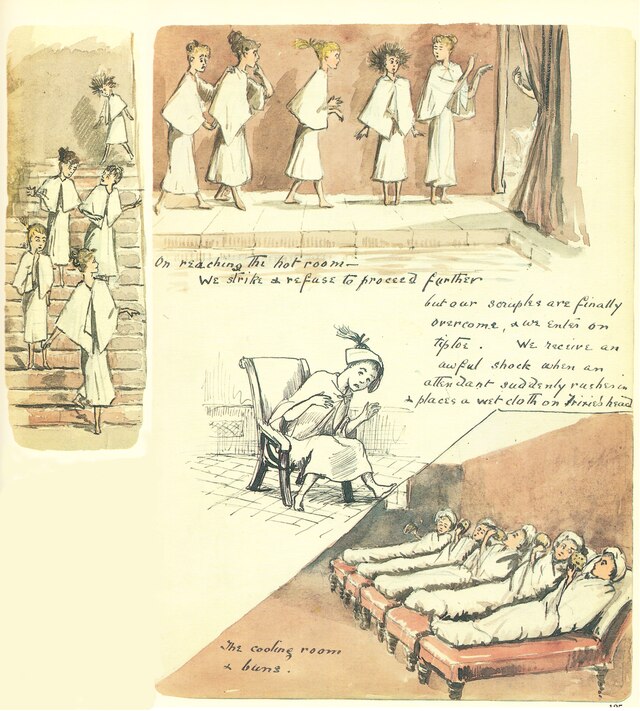 On reaching the hot room—
We strike & refuse to proceed further
but our scruples are finally
overcome, & we enter on
tiptoe. We receive an
awful shock when an
attendant suddenly rushes in
& places a wet cloth on Trixie's head
The cooling room
& buns.